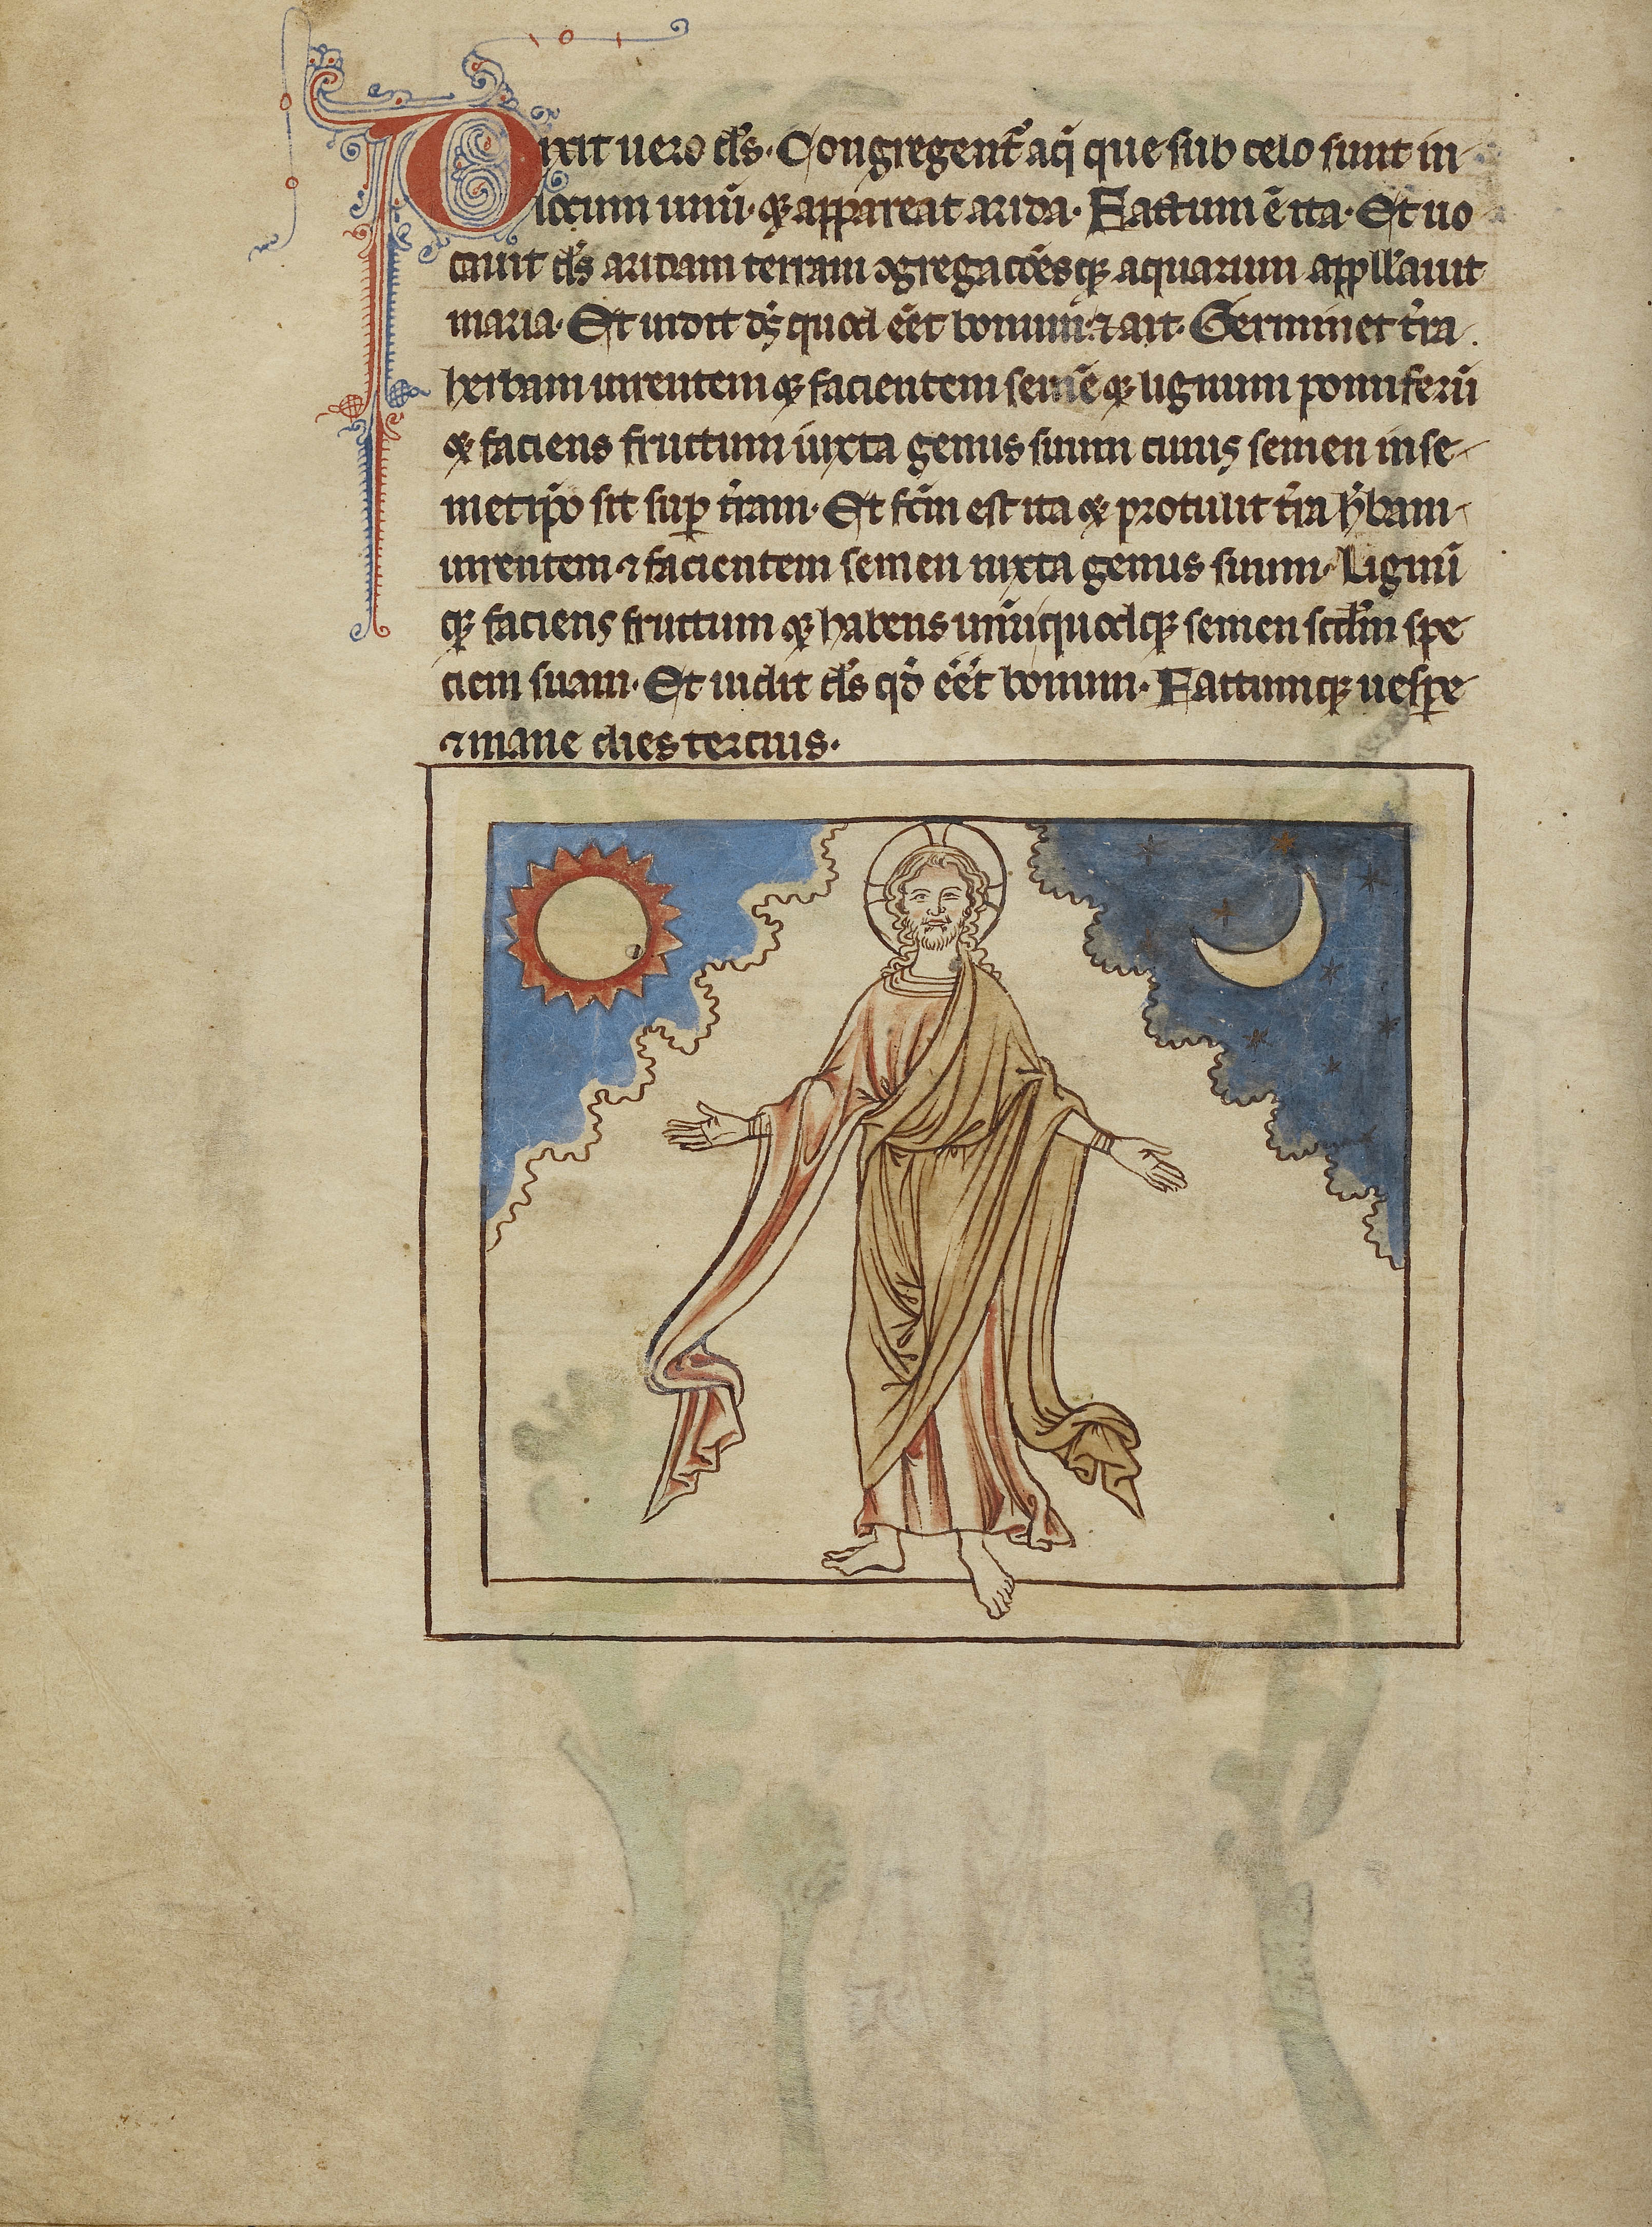 Dixit uero ds̄. Congregent᷑ aq̄ que sub celo sunt in
locum unū. qꝫ appareat arida. Factum ē ita. Et uo
cauit ds̄ aridam terram ꝯgregacōesqꝫ aquarum appll̄auit
maria. Et uidit ds̄ quod ēēt bonum. ⁊ ait. Germinet t̄ra.
herbam uirentem qꝫ facientem semē qꝫ lignum pomiferū
qꝫ faciens fructum iuxta genus suum cuius semen in se
metip̄o sit sup̄ t̄ram. Et fc̄m est ita qꝫ protulit t̄ra h̄bam
uirentem ⁊ facientem semen iuxta genus suum. Lignū
qꝫ faciens fructum qꝫ habens unūquodqꝫ semen scd̄m spe
ciem suam. Et uidit ds̄ qd̄ ēēt bonum. Factumqꝫ uesꝑe
⁊ mane dies tercius.